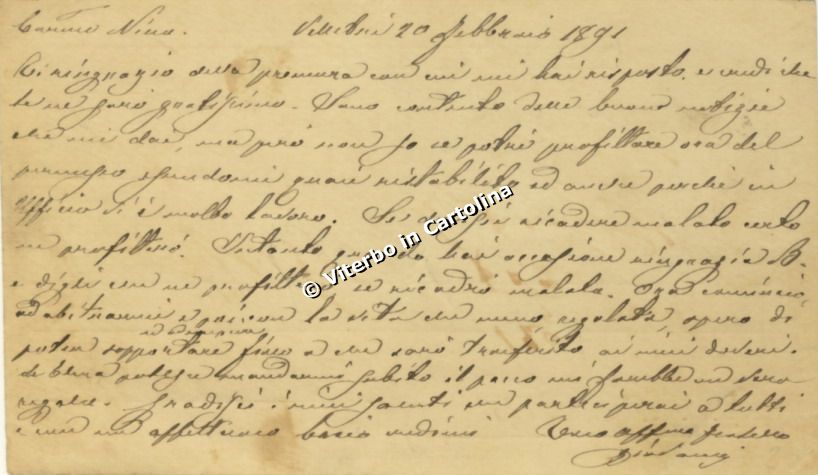 Carma Nina. Velletri 20 Febbraio 1891
Ti ringrazio della premura con cui mi hai risposto, e credi che
te ne sarò gratissimo. Sono contento delle buone notizie
che mi dai, ma però non so se potrò profittare ora del
permesso essendomi quasi ristabilito ed anche perchè in
Ufficio vi è molto lavoro. Se dovessi ricadere malato certo
ne profitterò. Intanto hai occasione ringrazia
e digli che ne se ricadrò malato. Ora comincio
ad abituarmi e poi con la vita che meno regolata, spero di
poter sopportare fino a che sarò trasferito ai miei doveri.
Se potesse mandarmi subito il mi farebbe un vero
regalo. Gradisci i miei saluti che parteciperai a tutti
e con un affettuoso bacio credimi Tuo affmo fratello
Giovanni
© Viterbo in Cartolina